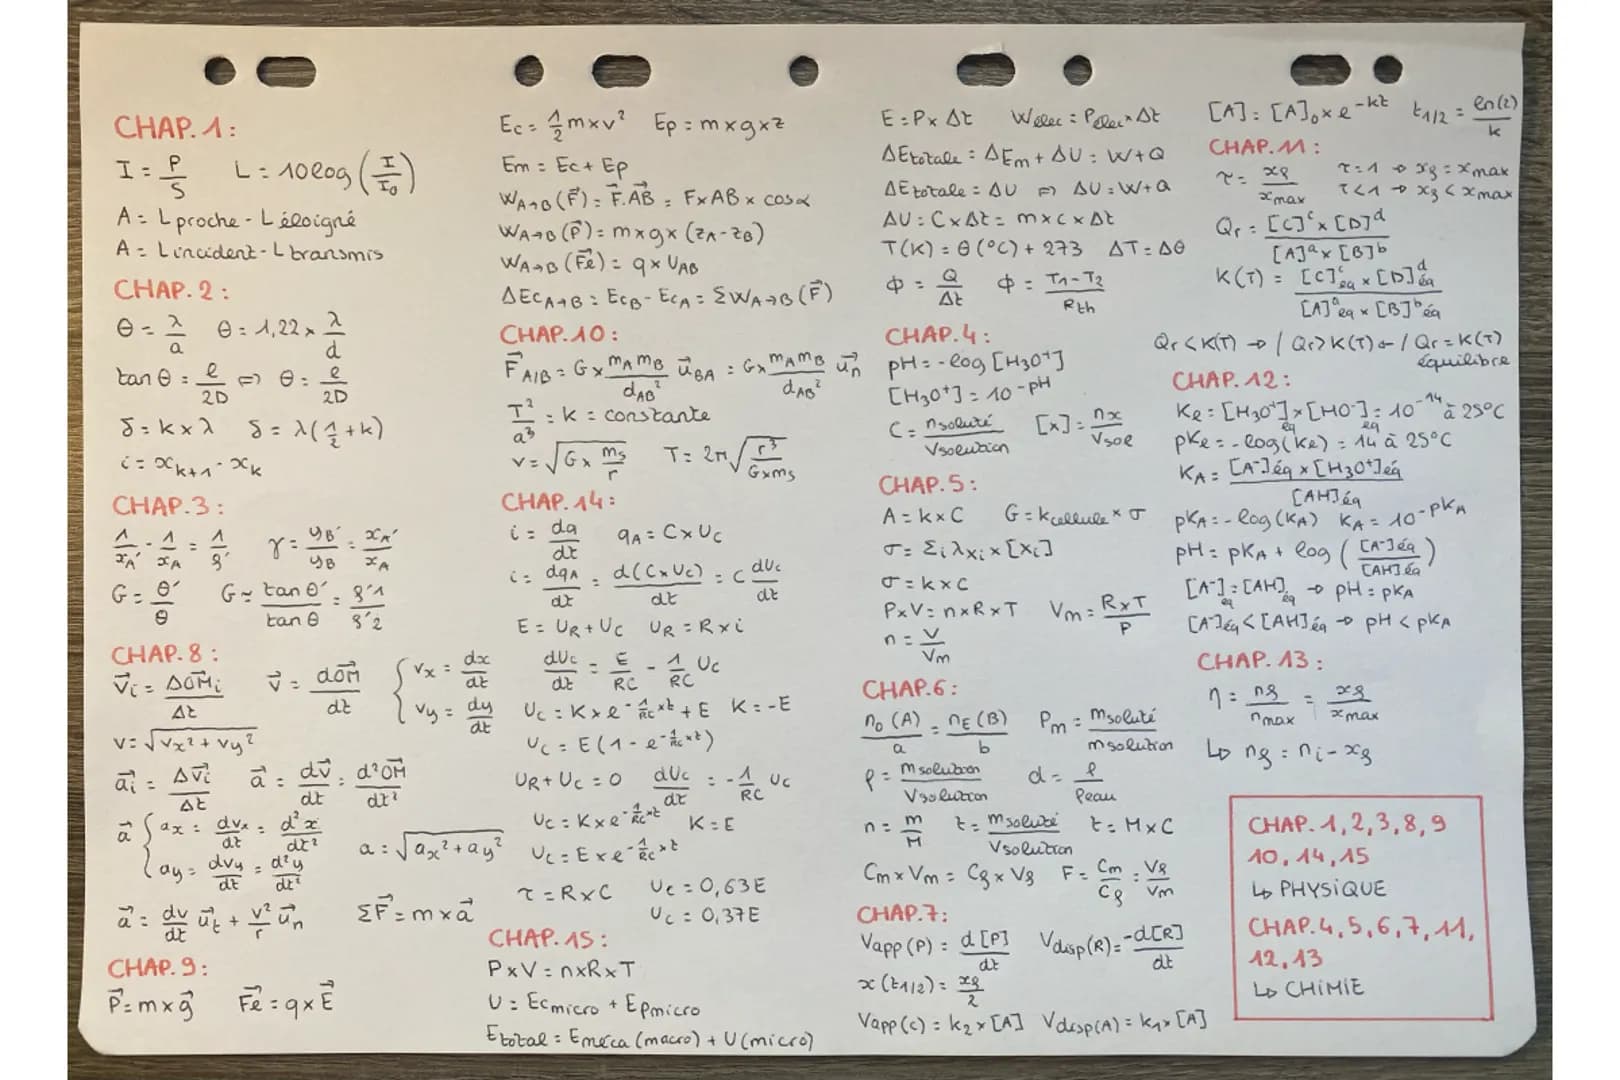 CHAP. 1 :
I = P/S L = 10 log (I/I₀)
A = L proche - L éloigné
A = L incident - L transmis
CHAP. 2 :
θ = λ/a θ = 1,22 × λ/d
tan θ = ℓ/2D ⇔ θ = ℓ/2D
δ = k × λ δ = λ(1/2 + k)
i = x_{k+1} - x_k
CHAP. 3 :
1/x_A' - 1/x_A = 1/f' γ = y_B'/y_B = x_A'/x_A
G = θ'/θ G ≃ tan θ'/tan θ = f'1/f'2
CHAP. 8 :
v⃗i = ΔOM⃗i/Δt v⃗ = dOM⃗/dt { vx = dx/dt
vy = dy/dt
v = √(vx² + vy²)
a⃗i = Δv⃗i/Δt a⃗ = dv⃗/dt = d²OM⃗/dt²
a⃗ { ax = dvx/dt = d²x/dt²
ay = dvy/dt = d²y/dt² a = √(ax² + ay²)
a⃗ = dv/dt u⃗t + v²/r u⃗n ΣF⃗ = m × a⃗
CHAP. 9 :
P⃗ = m × g⃗ F⃗e = q × E⃗
Ec = 1/2 m × v² Ep = m × g × z
Em = Ec + Ep
W_{A→B}(F⃗) = F⃗.AB⃗ = F × AB × cos α
W_{A→B}(P⃗) = m × g × (zA - zB)
W_{A→B}(F⃗e) = q × U_AB
ΔEc_{A→B} = Ec_B - Ec_A = ΣW_{A→B}(F⃗)
CHAP. 10 :
F⃗_{A/B} = G × mA mB/dAB² u⃗_BA = G × mA mB/dAB² u⃗n
T²/a³ = k = constante
v = √(G × ms/r) T = 2π √(r³/G×ms)
CHAP. 14 :
i = dq/dt qA = C × Uc
i = dqA/dt = d(C × Uc)/dt = C dUc/dt
E = UR + Uc UR = R × i
dUc/dt = E/RC - 1/RC Uc
Uc = K × e^{-1/RC × t} + E K = -E
Uc = E (1 - e^{-1/RC × t})
UR + Uc = 0 dUc/dt = -1/RC Uc
Uc = K × e^{-1/RC × t} K = E
Uc = E × e^{-1/RC × t}
τ = R × C Uc = 0,63E
Uc = 0,37E
CHAP. 15 :
P × V = n × R × T
U = Ec micro + Ep micro
E total = E méca (macro) + U (micro)
E = P × Δt Wélec = Pélec × Δt
ΔE totale = ΔEm + ΔU = W + Q
ΔE totale = ΔU ⇔ ΔU = W + Q
ΔU = C × Δt = m × c × Δt
T(K) = θ(°C) + 273 ΔT = Δθ
ϕ = Q/Δt ϕ = T1 - T2/Rth
CHAP. 4 :
pH = -log [H3O⁺]
[H3O⁺] = 10^{-pH}
C = n soluté/V solution [X] = nx/V sol
CHAP. 5 :
A = k × C G = k cellule × σ
σ = Σi λXi × [Xi]
σ = k × C
P × V = n × R × T Vm = R × T/P
n = V/Vm
CHAP. 6 :
n₀(A)/a = nE(B)/b Pm = m soluté/m solution
ρ = m solution/V solution d = ρ/ρ eau
n = m/M t = m soluté/V solution t = M × C
Cm × Vm = Cf × Vf F = Cm/Cf = Vf/Vm
CHAP. 7 :
Vapp(P) = d[P]/dt Vdisp(R) = -d[R]/dt
x(t1/2) = xf/2
Vapp(C) = k2 × [A] Vdisp(A) = k1 × [A]
[A] = [A]₀ × e^{-kt} t1/2 = ln(2)/k
CHAP. 11 :
τ = xf/xmax τ = 1 → xf = xmax
τ < 1 → xf < xmax
Qr = [C]^c × [D]^d/[A]^a × [B]^b
K(T) = [C]^c éq × [D]^d éq/[A]^a éq × [B]^b éq
Qr < K(T) → / Qr > K(T) ← / Qr = K(T)
équilibre
CHAP. 12 :
Ke = [H3O⁺]éq × [HO⁻]éq = 10^{-14} à 25°C
pKe = -log(Ke) = 14 à 25°C
KA = [A⁻]éq × [H3O⁺]éq/[AH]éq
pKA = -log(KA) KA = 10^{-pKA}
pH = pKA + log ([A⁻]éq/[AH]éq)
[A⁻]éq = [AH]éq → pH = pKA
[A⁻]éq < [AH]éq → pH < pKA
CHAP. 13 :
η = nf/nmax = xf/xmax
↳ nf = ni - xf
CHAP. 1, 2, 3, 8, 9
10, 14, 15
↳ PHYSIQUE
CHAP. 4, 5, 6, 7, 11,
12, 13
↳ CHIMIE